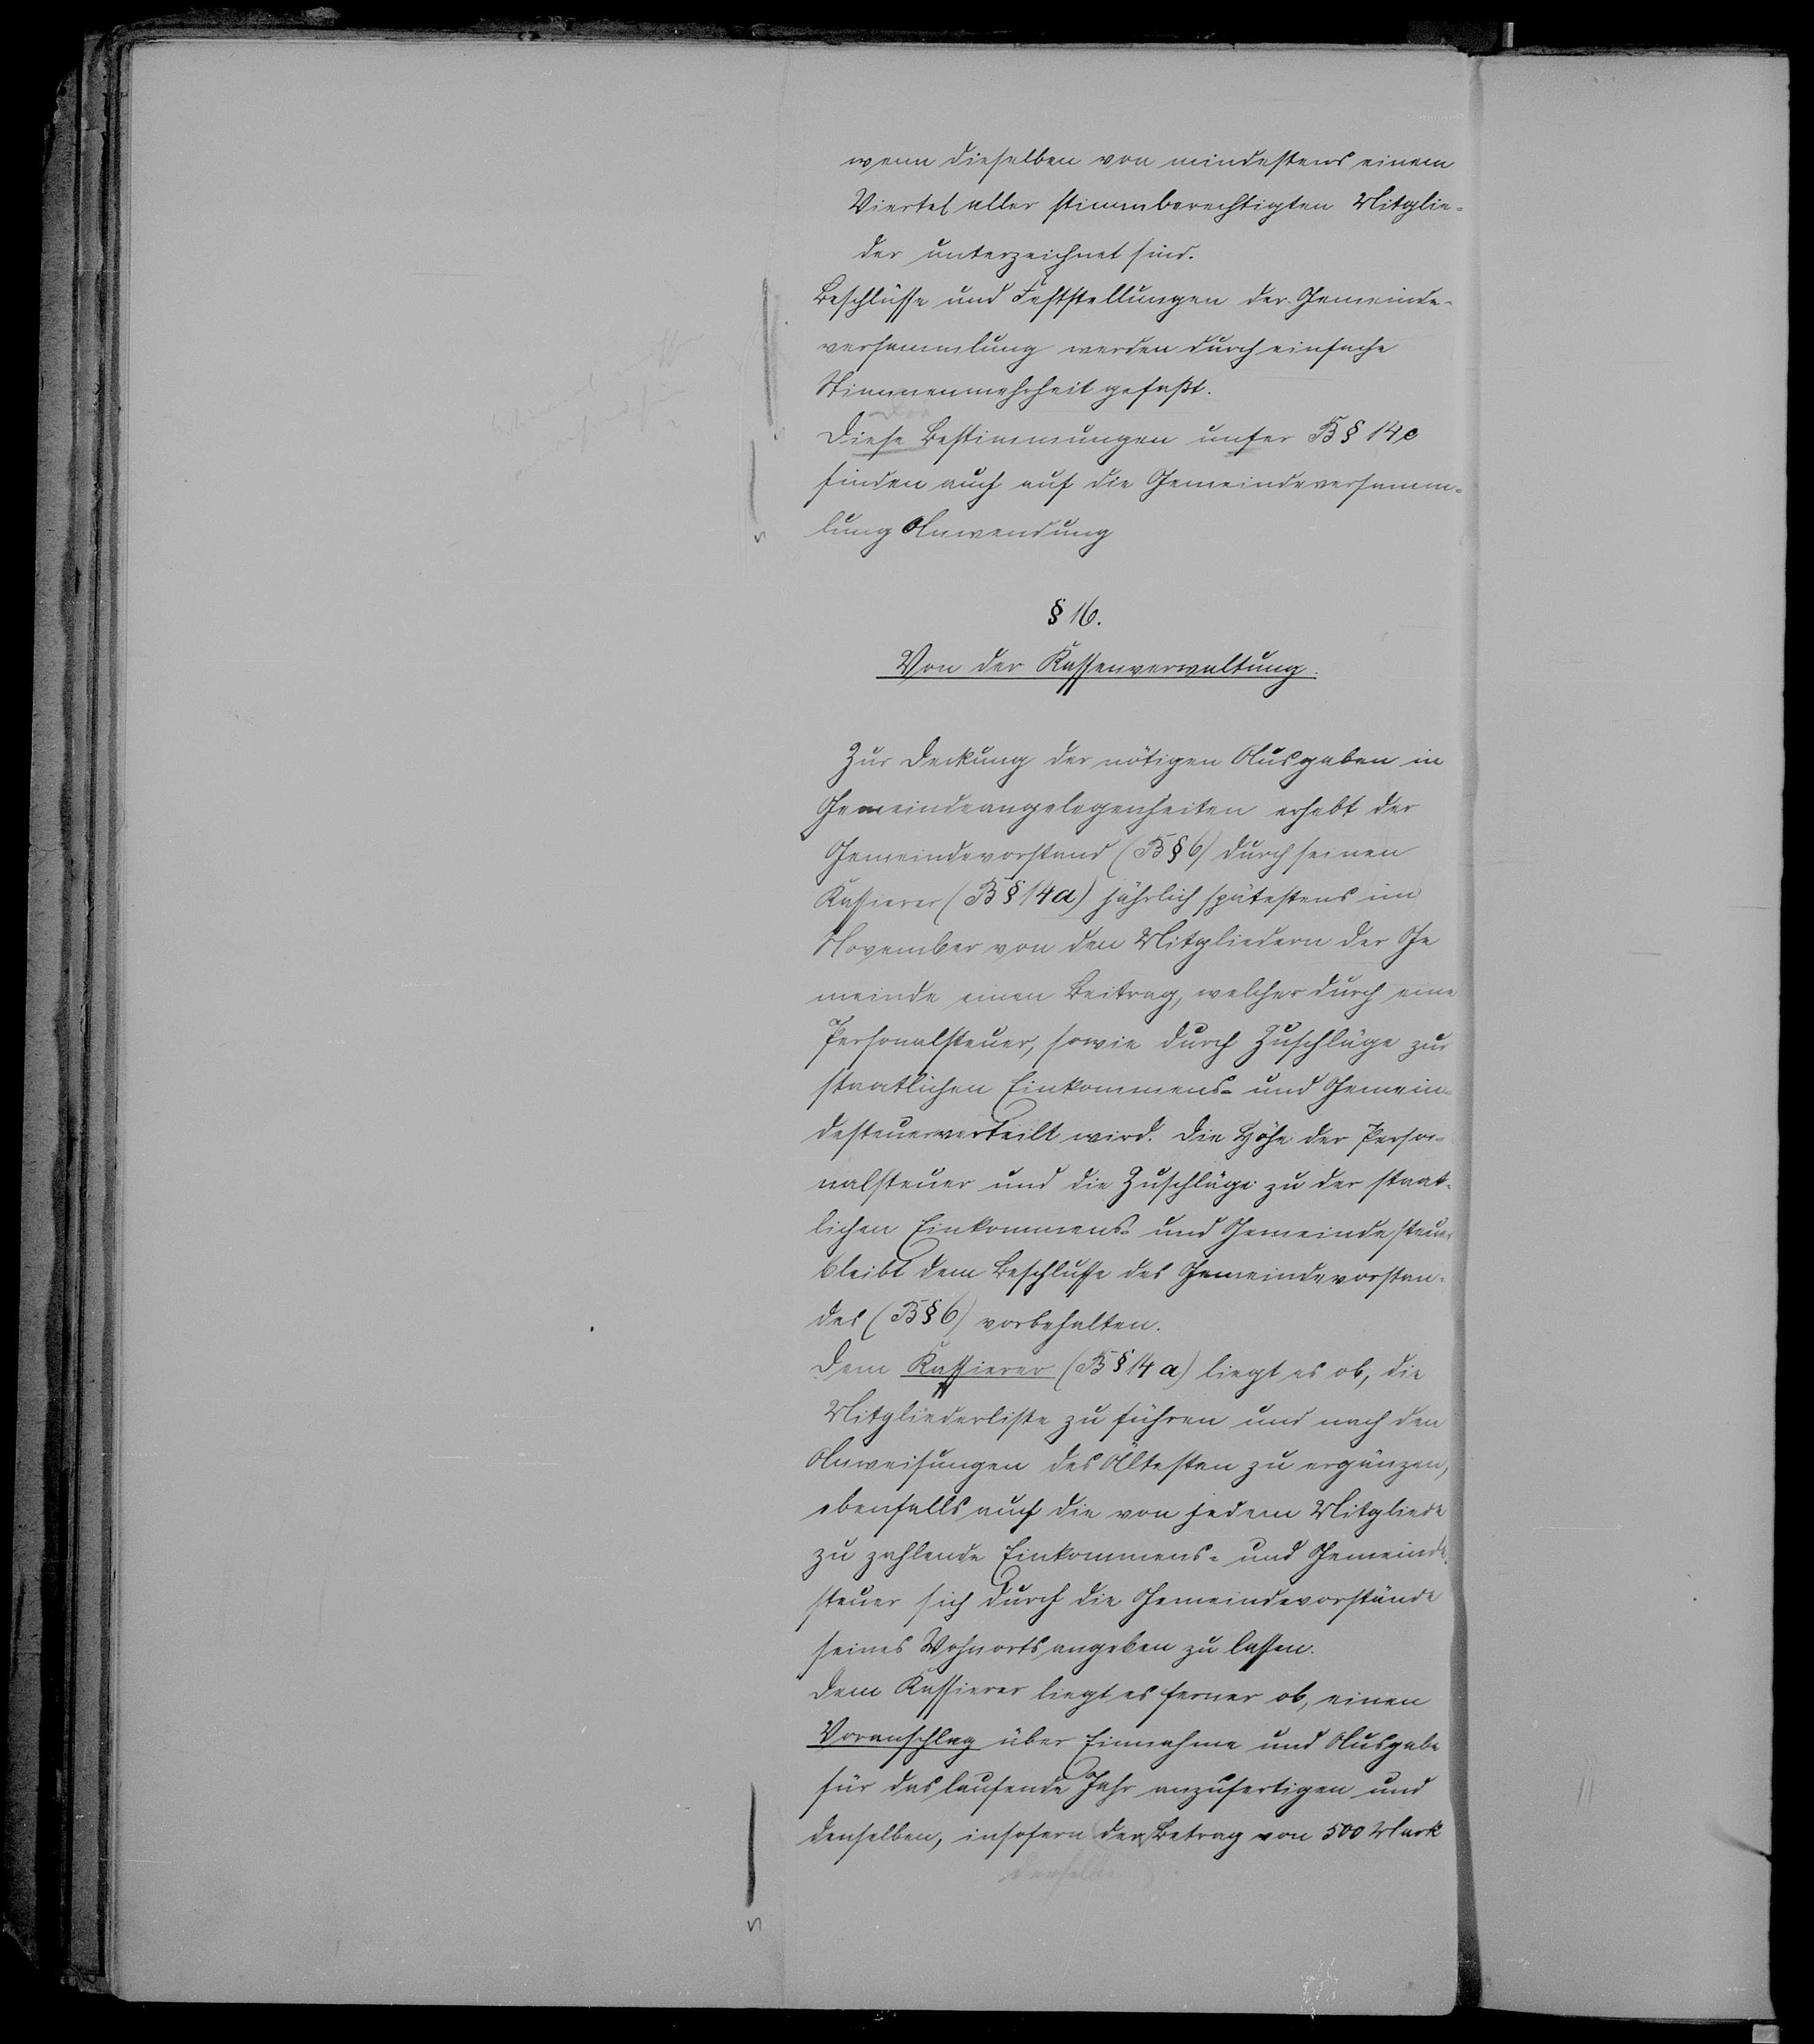 wenn dieselben von mindestens einem
Viertel aller stimmberechtigten Mitglie-
der unterzeichnet sind.
Beschlüsse und Feststellungen der Gemeinde-
versammlung werden durch einfache
Stimmenmehrheit gefaßt.
Diese Bestimmungen unser B § 14 c
finden auch auf die Gemeindeversamm-
lung Anwendung
§ 16.
Von der Kassenverwaltung.
Zur Deckung der nötigen Ausgaben in
Gemeindeangelegenheiten erhebt der
Gemeindevorstand (B § 6) durch seinen
Kassierer (B § 14 a) jährlich spätestens im
November von den Mitgliedern der Ge
meinde einen Beitrag, welcher durch eine
Personalsteuer, sowie durch Zuschläge zur
staatlichen Einkommens- und Gemein-
desteuer verteilt wird. Die Höhe der Perso-
nalsteuer und die Zuschläge zu der staat-
lichen Einkommens- und Gemeindesteuer
bleibt dem Beschlusse des Gemeindevorstan-
des (B § 6) vorbehalten.
Dem Kassierer (B § 14 a) liegt es ob, die
Mitgliederliste zu führen und nach den
Anweisungen des Ältesten zu ergänzen,
ebenfalls auch die von jedem Mitgliede
zu zahlende Einkommens- und Gemeinde-
steuer sich durch die Gemeindevorstände
seines Wohnorts angeben zu lassen.
Dem Kassierer liegt es ferner ob, einen
Voranschlag über Einnahme und Ausgabe
für das laufende Jahr anzufertigen und
denselben, insofern der Betrag von 500 Mark
derselbe